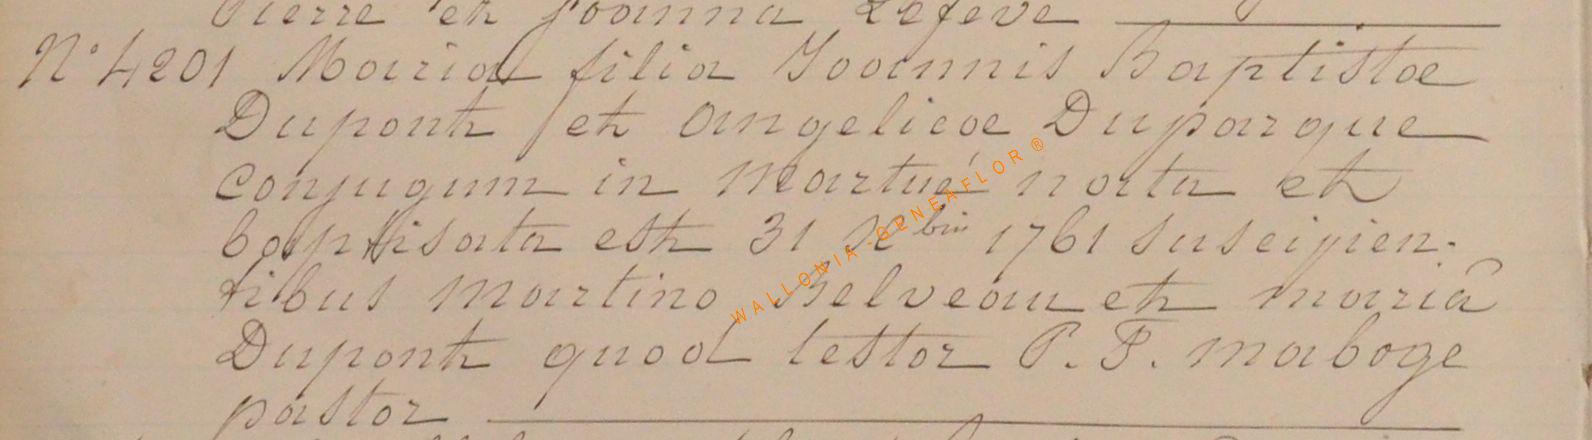 Pierre et Joanna Lefeve
N° 4201 Maria filia Joannis Baptistae
Dupont et Angelicae Duparque
conjugum in Martué nata et
baptisata est 31 Xbris 1761 suscipien-
tibus Martino Belveau et mariâ
Dupont quod testor P. F. maboge
pastor
WALLONIA-GENEAFLOR®